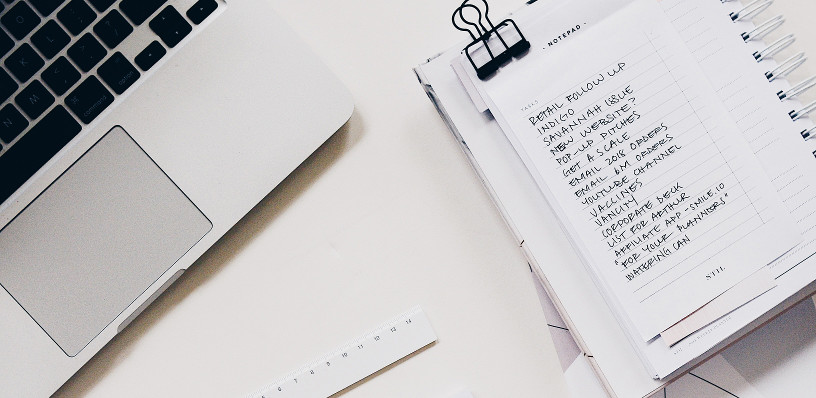 · NOTEPAD ·
TASKS
RETAIL FOLLOW UP
INDIGO
SAVANNAH ISSUE
NEW WEBSITE?
POP-UP PITCHES
GET A SCALE
EMAIL 2018 ORDERS
EMAIL 6M ORDERS
YOUTUBE CHANNEL
VACCINES
VANCITY
CORPORATE DECK
LIST FOR ARTHUR
AFFILIATE APP - SMILE.IO
"FOR YOUR PLANNERS"
WATERING CAN
5 6 7 8 9 10 11 12 13 14
N
M
command